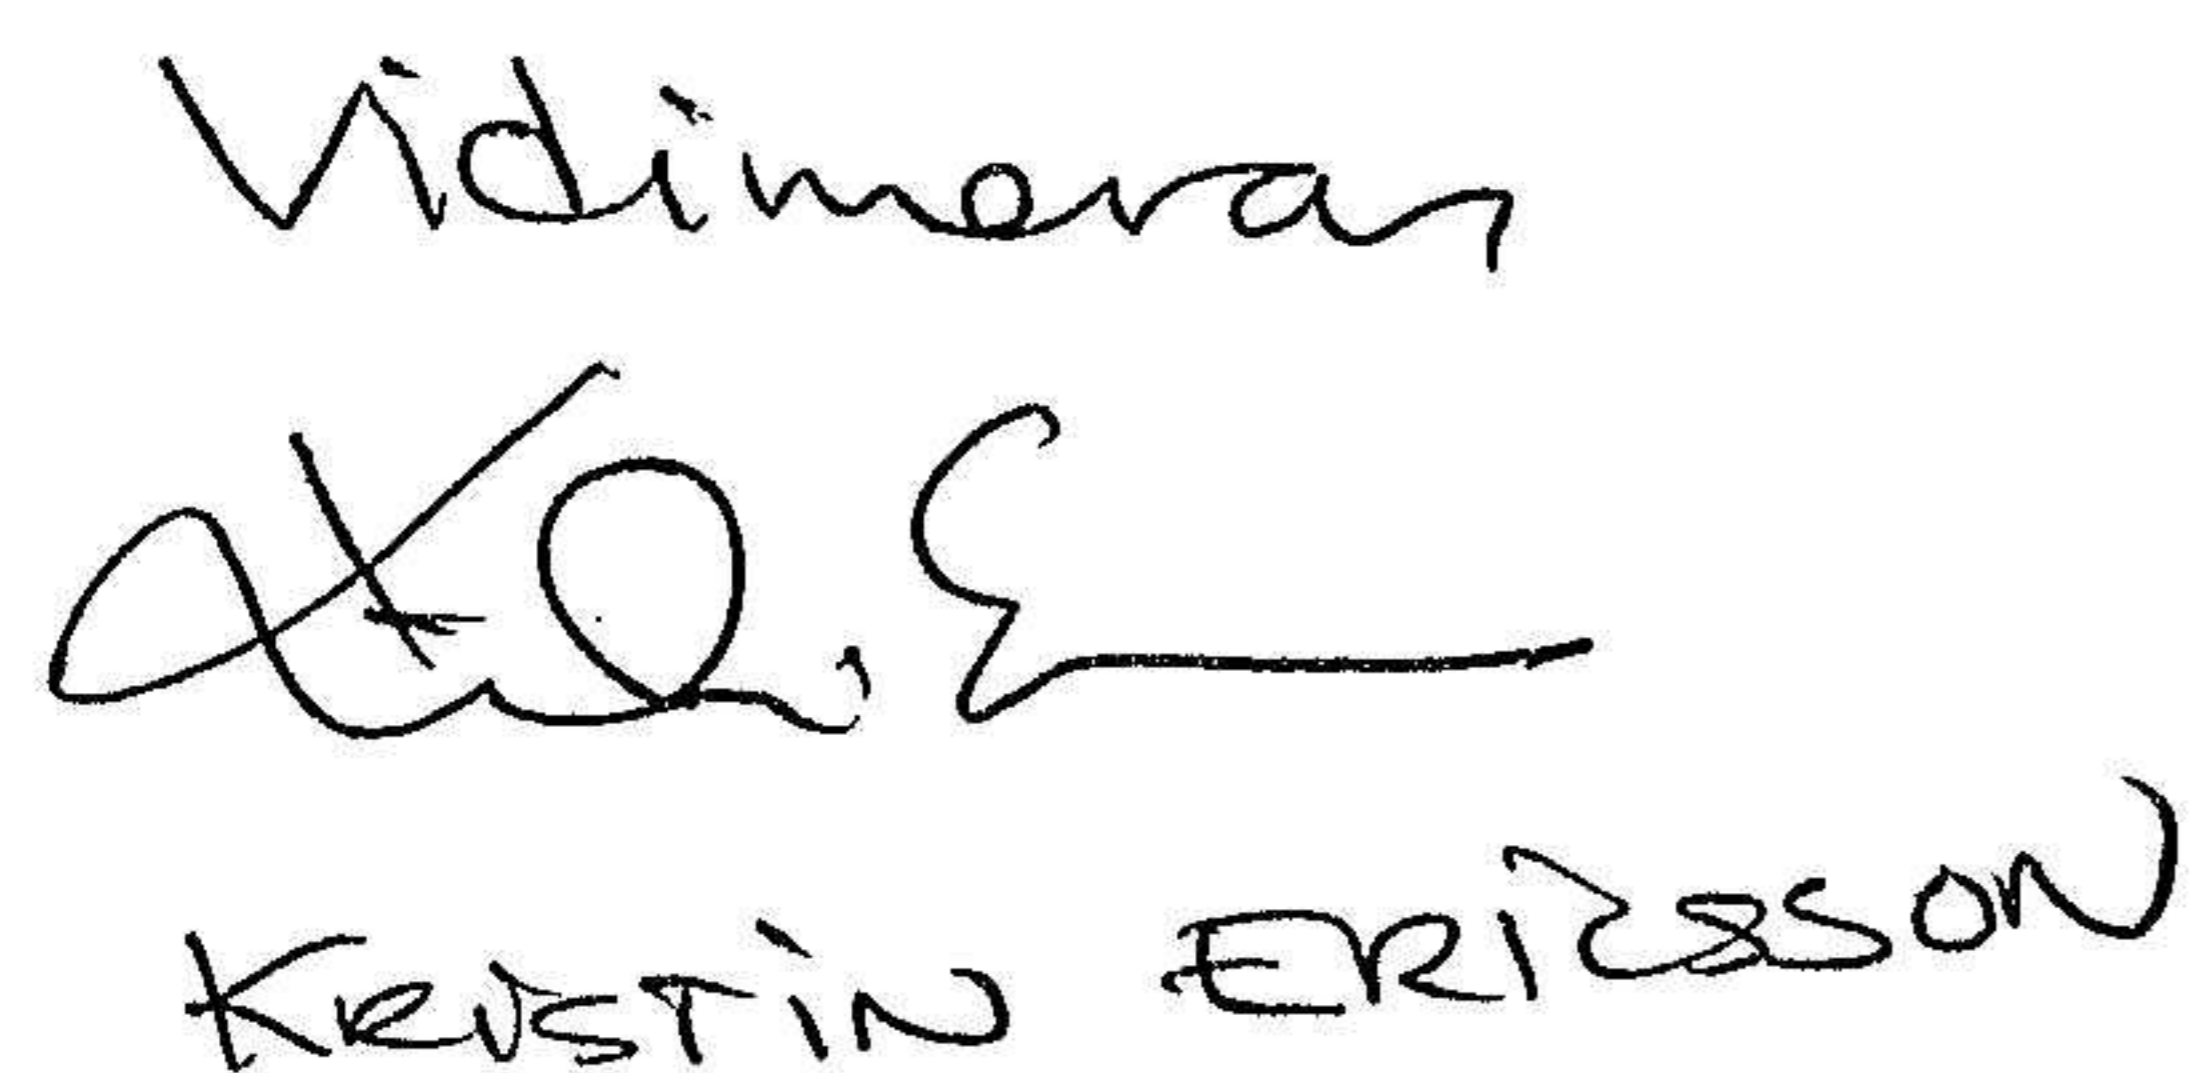 Vidimeras
KRISTIN ERICSSON